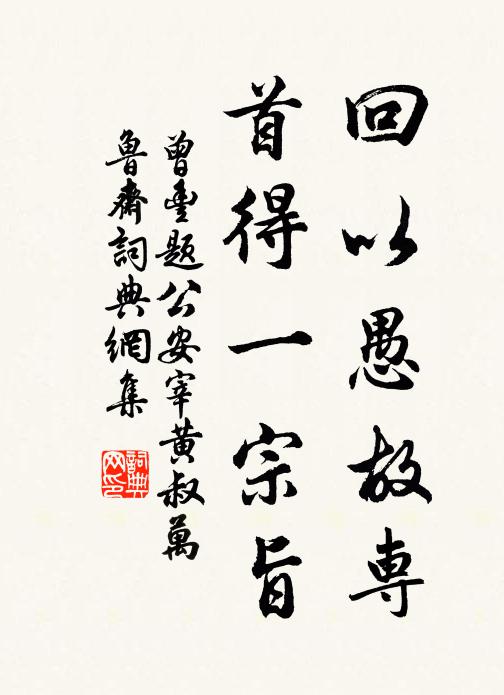 回以愚故専
首得一宗旨
曾豊題公安宰黄叔萬
魯齋詞典網集
詞典
网印